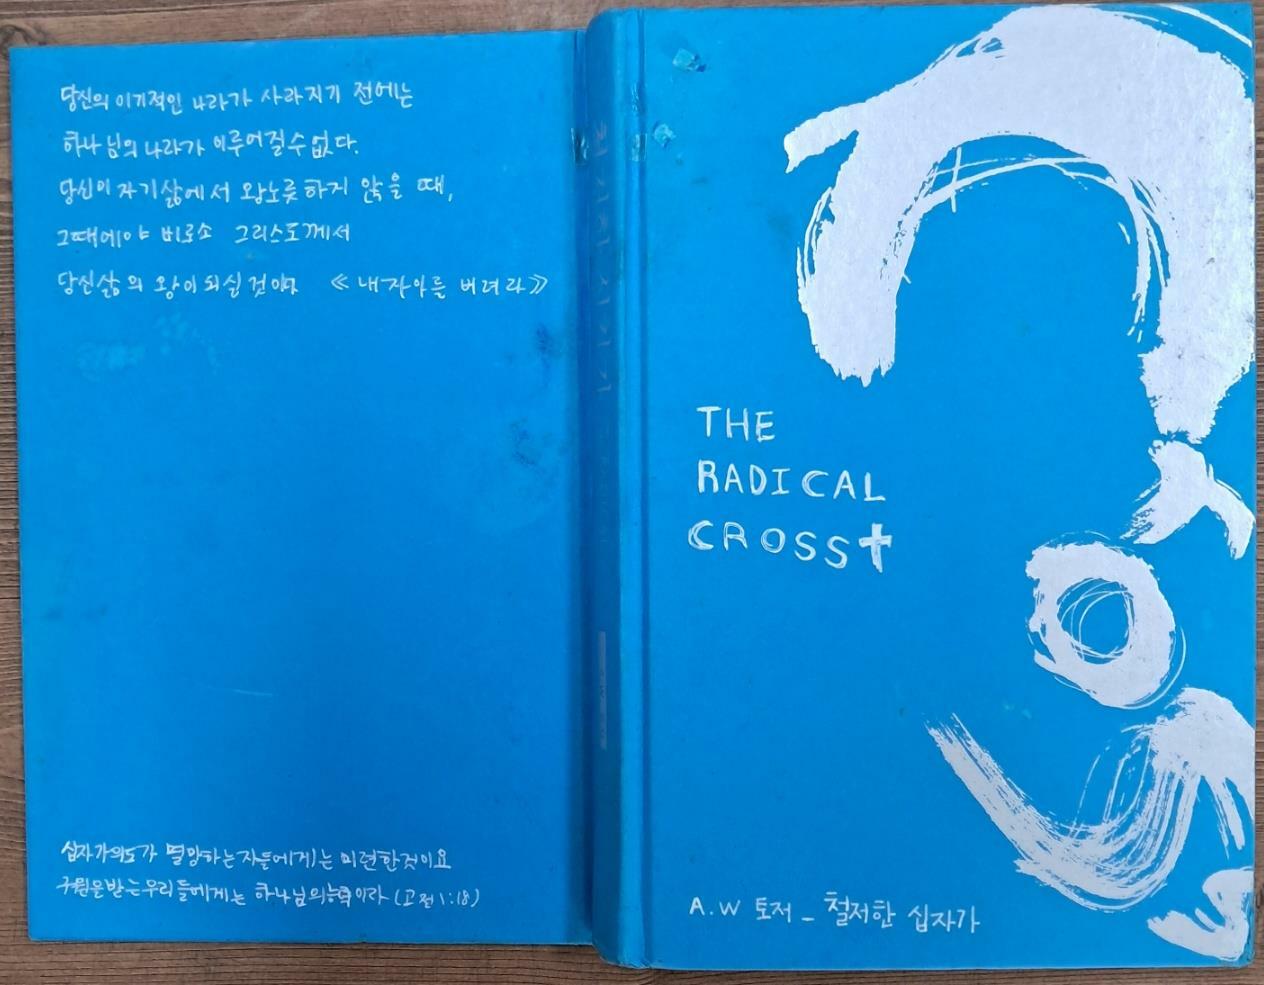 당신의 이기적인 나라가 사라지기 전에는
하나님의 나라가 이루어질 수 없다.
당신이 자기 삶에서 왕노릇 하지 않을 때,
그때에야 비로소 그리스도께서
당신 삶의 왕이 되실 것이다 《내 자아를 버려라》
십자가의 도가 멸망하는 자들에게는 미련한 것이요
구원을 받는 우리들에게는 하나님의 능력이라 (고전 1:18)
THE
RADICAL
CROSS
A.W 토저 - 철저한 십자가